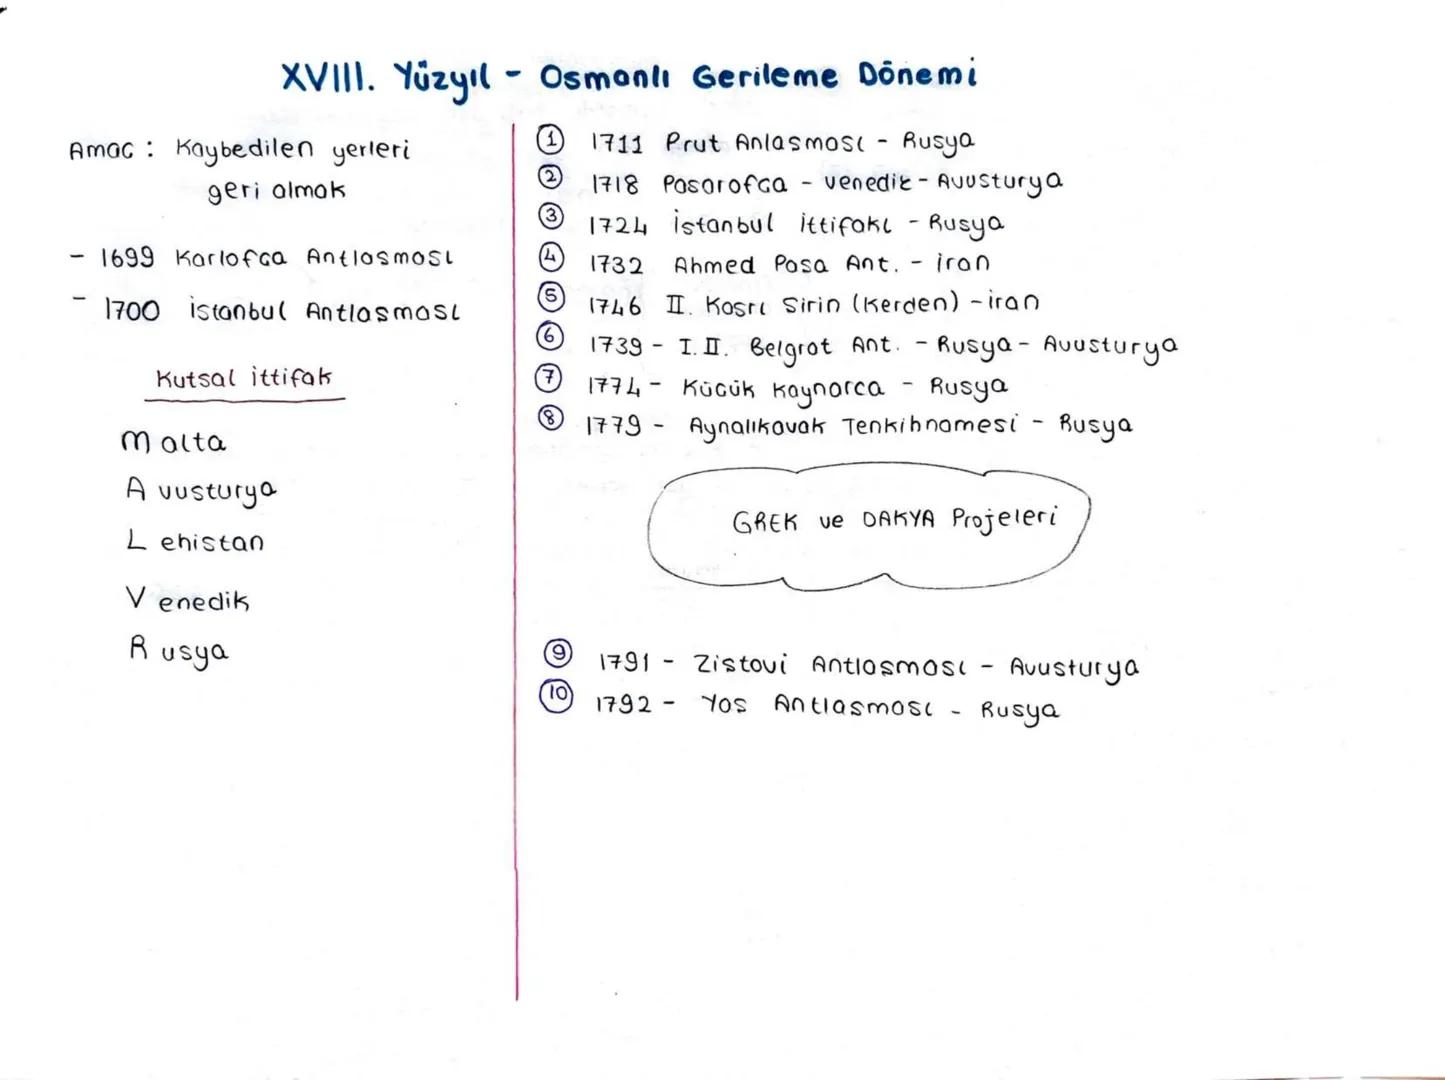 XVIII. Yüzyıl - Osmanlı Gerileme Dönemi
Amac : Kaybedilen yerleri
geri almak
- 1699 Karlofca Antlasması
- 1700 istanbul Antlasması
Kutsal ittifak
Malta
Avusturya
Lehistan
Venedik
Rusya
1 1711 Prut Anlasması - Rusya
2 1718 Pasarofca - venedik - Avusturya
3 1724 istanbul ittifakı - Rusya
4 1732 Ahmed Pasa Ant. - iran
5 1746 II. Kasrı Sirin (Kerden) - iran
6 1739 - I. II. Belgrat Ant. - Rusya - Avusturya
7 1774 - Kücük Kaynarca - Rusya
8 1779 - Aynalıkavak Tenkihnamesi - Rusya
GREK ve DAKYA Projeleri
9 1791 - Zistovi Antlasması - Avusturya
10 1792 - Yas Antlasması - Rusya